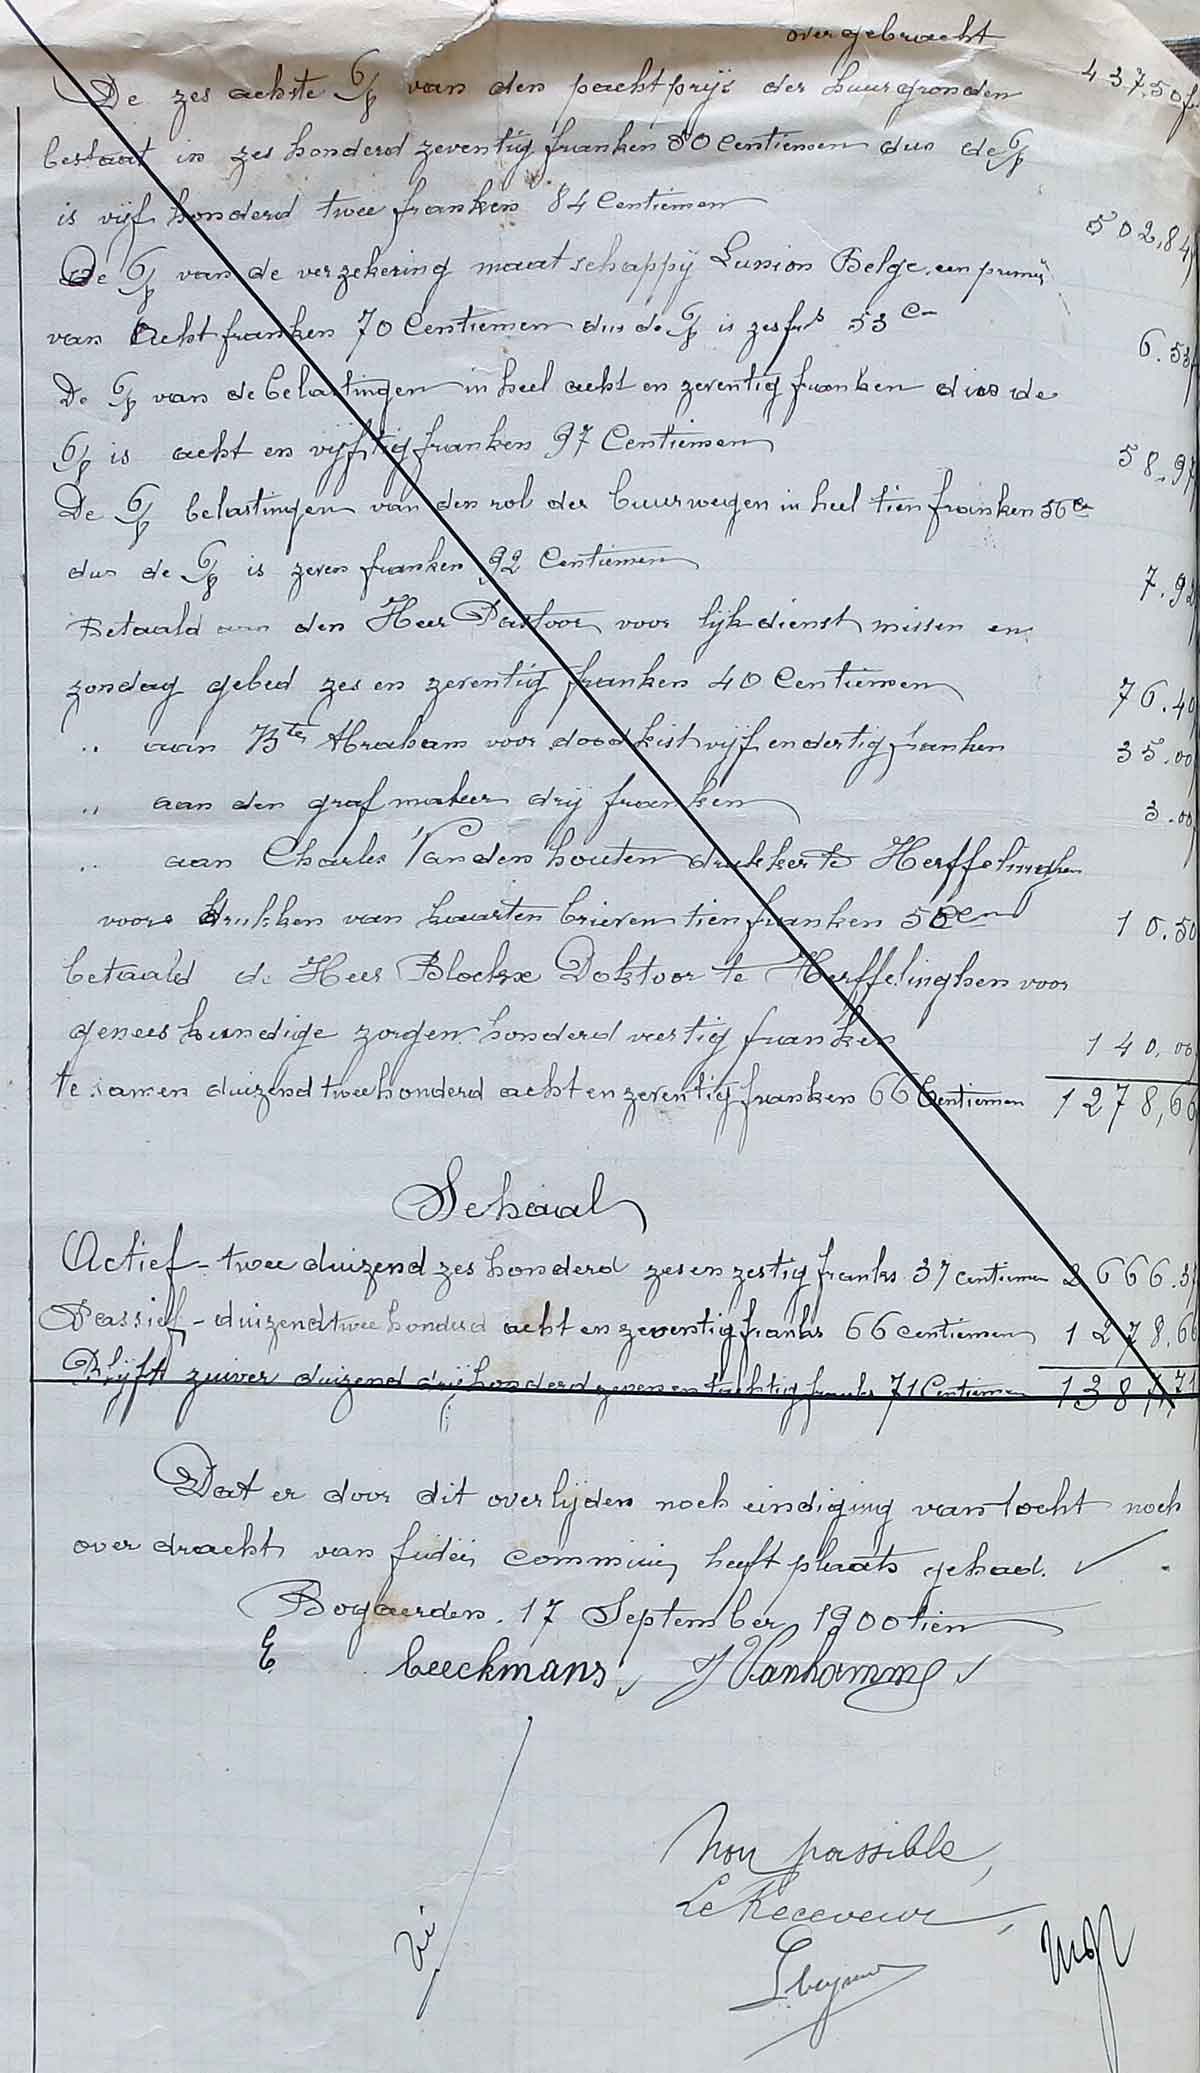 overgebracht
437.50 f
De zes achste 6/8 van den pachtprijs der huurgronden
bestaat in zes honderd zeventig franken 50 Centiemen dus de 6/8
is vijf honderd twee franken 84 Centiemen 502,84
De 6/8 van de verzekering maatschappij Lunion Belge een premij
van Acht franken 70 Centiemen dus de 6/8 is zes frs 53 Cen 6.53
De 6/8 van de belastingen in heel acht en zeventig franken dus de
6/8 is acht en vijftig franken 97 Centiemen 58.97
De 6/8 belastingen van den rol der buurwegen in heel tien franken 56 Cen
dus de 6/8 is zeven franken 92 Centiemen 7.92
Betaald aan den Heer Pastoor voor lijkdienst missen en
zondag gebed zes en zeventig franken 40 Centiemen 76.40
„ aan Bte Abraham voor doodkist vijf en dertig franken 35.00
„ aan den grafmaker drij franken 3.00
„ aan Charles Vandenhouten drukker te Herffelinghen
voor drukken van kaarten brieven tien franken 50 Cen 10.50
betaald de Heer Blockx Doktoor te Herffelinghen voor
geneeskundige zorgen honderd veertig franken 140,00
te samen duizend tweehonderd acht en zeventig franken 66 Centiemen 1278,66
Schaal
Actief - twee duizend zes honderd zes en zestig franks 37 centiemen 2666.37
Passief - duizend twee honderd acht en zeventig franks 66 centiemen 1278,66
Blijft zuiver duizend drij honderd zeven en tachtig franks 71 Centiemen 1387,71
Dat er door dit overlijden noch eindiging van tocht noch
over dracht van fideij commiiij heeft plaats gehad.
Bogaerden. 17 September 1900 tien
E beeckmans J Vanhamme
Non passible,
Le Receveur,